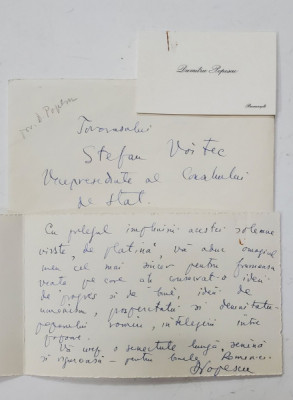 Dumitru Popescu
București
tov. D. Popescu
Tovarășului
Ștefan Voitec
Vicepreședinte al Consiliului
de Stat
Cu prilejul împlinirii acestei solemne
vîrste, „de platină”, vă aduc omagiul
meu cel mai sincer pentru frumoasa
viață pe care ați consacrat-o ideii
de progres și de bine, ideii de
umanism, prosperității și demnității
poporului român, înțelegerii între
popoare.
Vă urez o senectute lungă, senină
și spornică – pentru binele României.
DPopescu